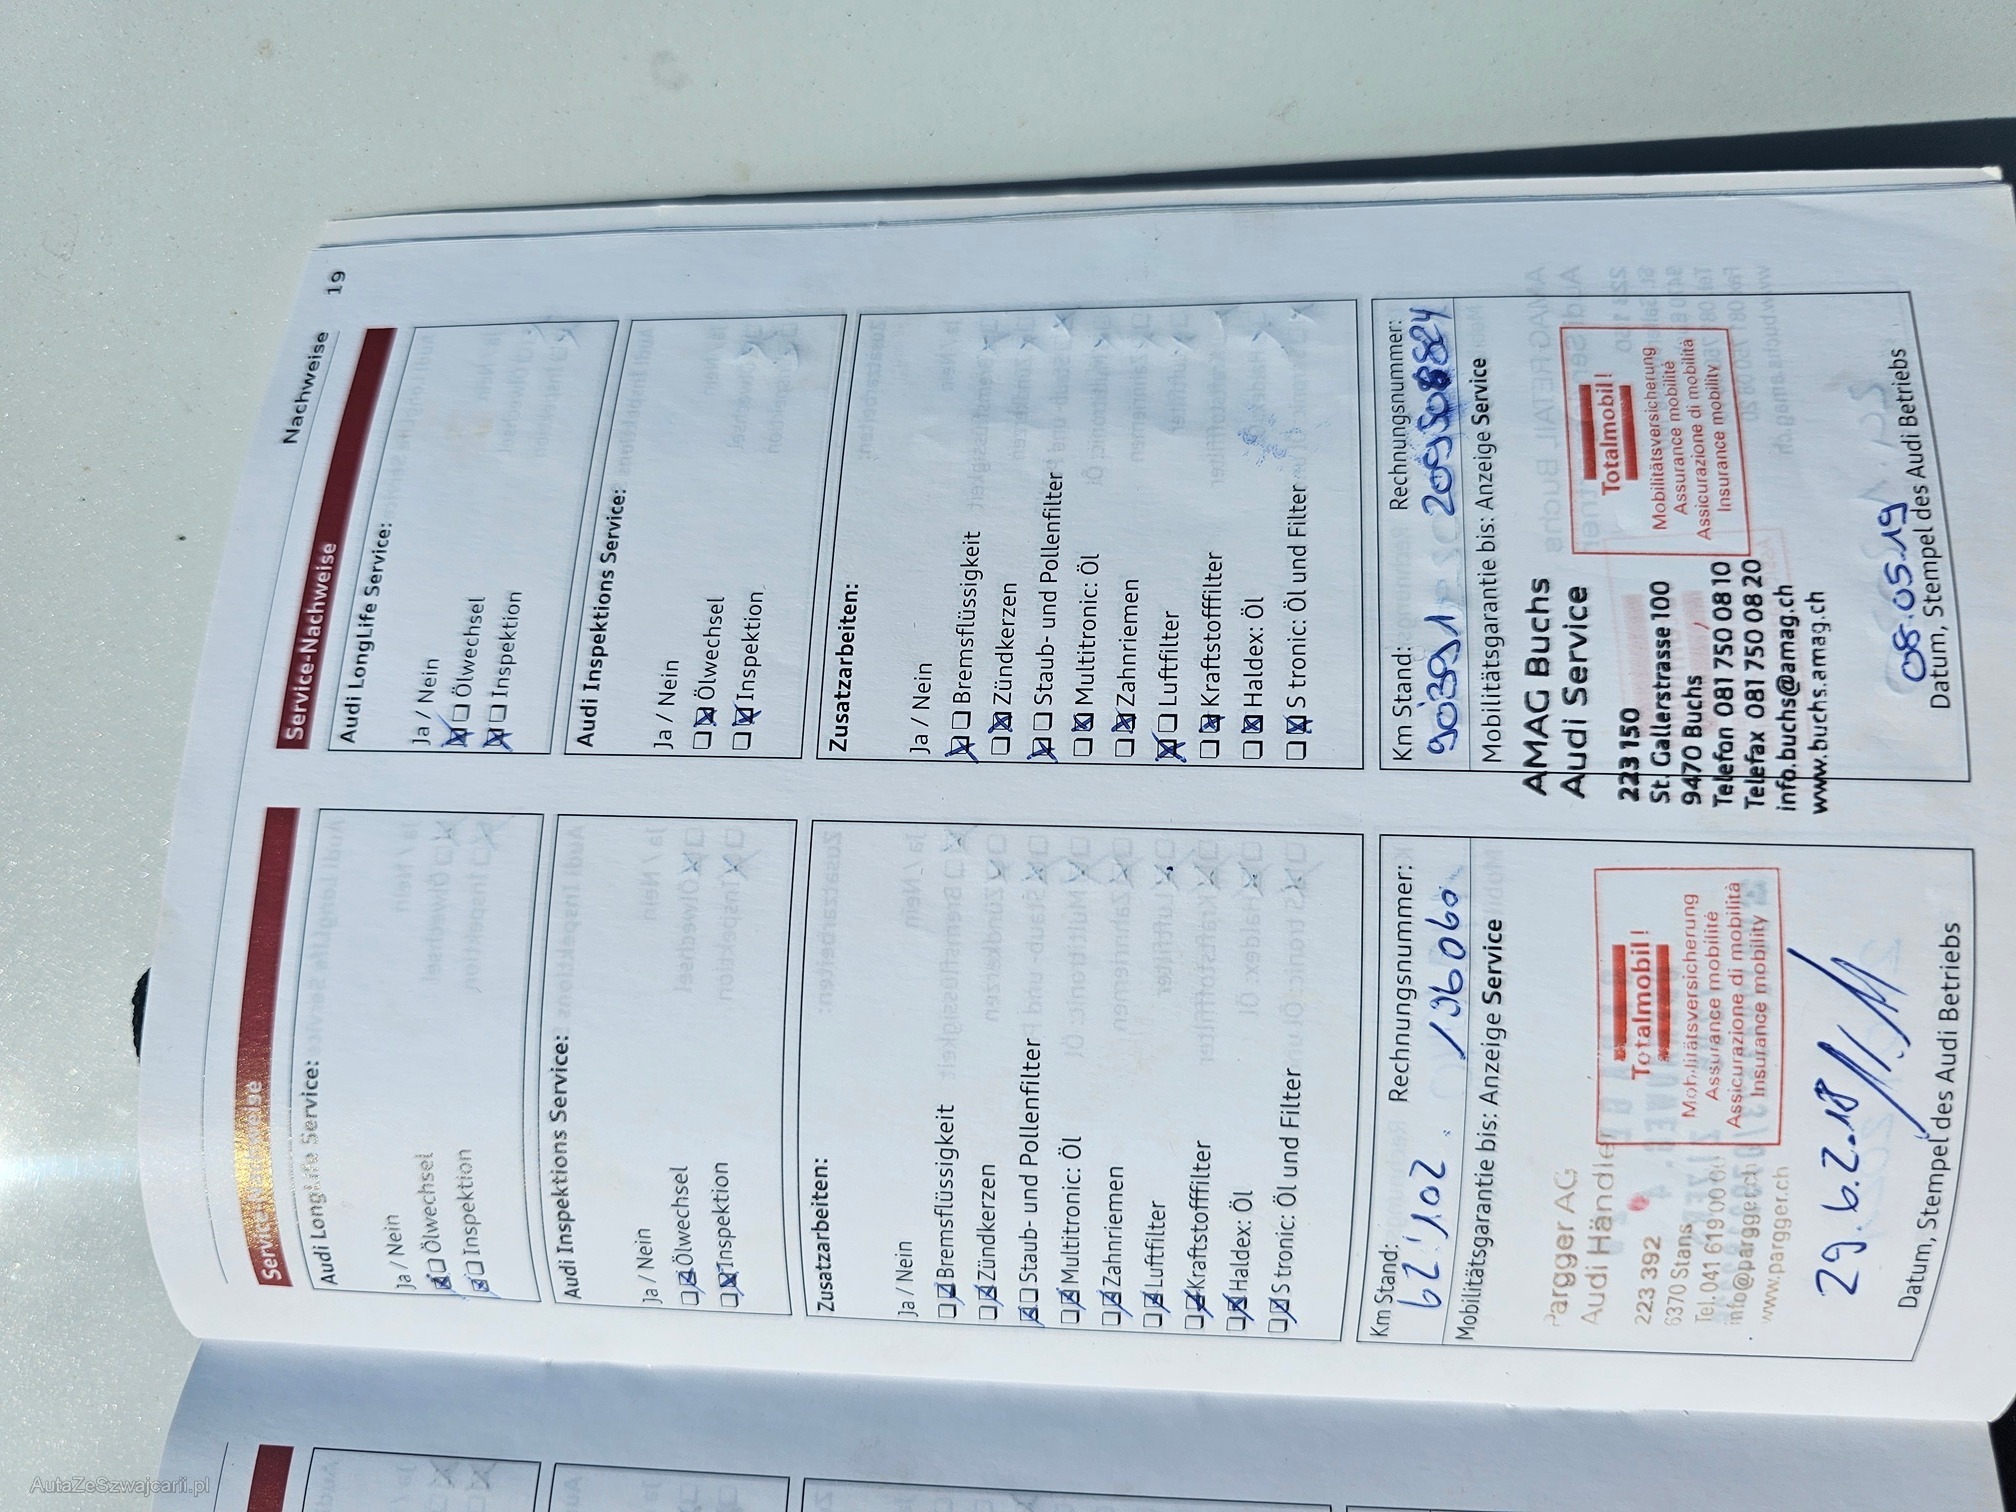 Nachweise 19
Service-Nachweise
Audi LongLife Service:
Ja / Nein
Ölwechsel
Inspektion
Audi Inspektions Service:
Ja / Nein
Ölwechsel
Inspektion
Zusatzarbeiten:
Ja / Nein
Bremsflüssigkeit
Zündkerzen
Staub- und Pollenfilter
Multitronic: Öl
Zahnriemen
Luftfilter
Kraftstofffilter
Haldex: Öl
S tronic: Öl und Filter
Km Stand: Rechnungsnummer:
62'102 136060
Mobilitätsgarantie bis: Anzeige Service
Pargger AG
Audi Händler
223 392
6370 Stans
Tel. 041 619 00 00
info@pargger.ch
www.pargger.ch
Totalmobil!
Mobilitätsversicherung
Assurance mobilité
Assicurazione di mobilità
Insurance mobility
29.6.2.18
Datum, Stempel des Audi Betriebs
Service-Nachweise
Audi LongLife Service:
Ja / Nein
Ölwechsel
Inspektion
Audi Inspektions Service:
Ja / Nein
Ölwechsel
Inspektion
Zusatzarbeiten:
Ja / Nein
Bremsflüssigkeit
Zündkerzen
Staub- und Pollenfilter
Multitronic: Öl
Zahnriemen
Luftfilter
Kraftstofffilter
Haldex: Öl
S tronic: Öl und Filter
Km Stand: Rechnungsnummer:
90'391
Mobilitätsgarantie bis: Anzeige Service
AMAG Buchs
Audi Service
223 150
St. Gallerstrasse 100
9470 Buchs
Telefon 081 750 08 10
Telefax 081 750 08 20
info.buchs@amag.ch
www.buchs.amag.ch
Totalmobil!
Mobilitätsversicherung
Assurance mobilité
Assicurazione di mobilità
Insurance mobility
08.05.19
Datum, Stempel des Audi Betriebs
AutaZeSzwajcarii.pl